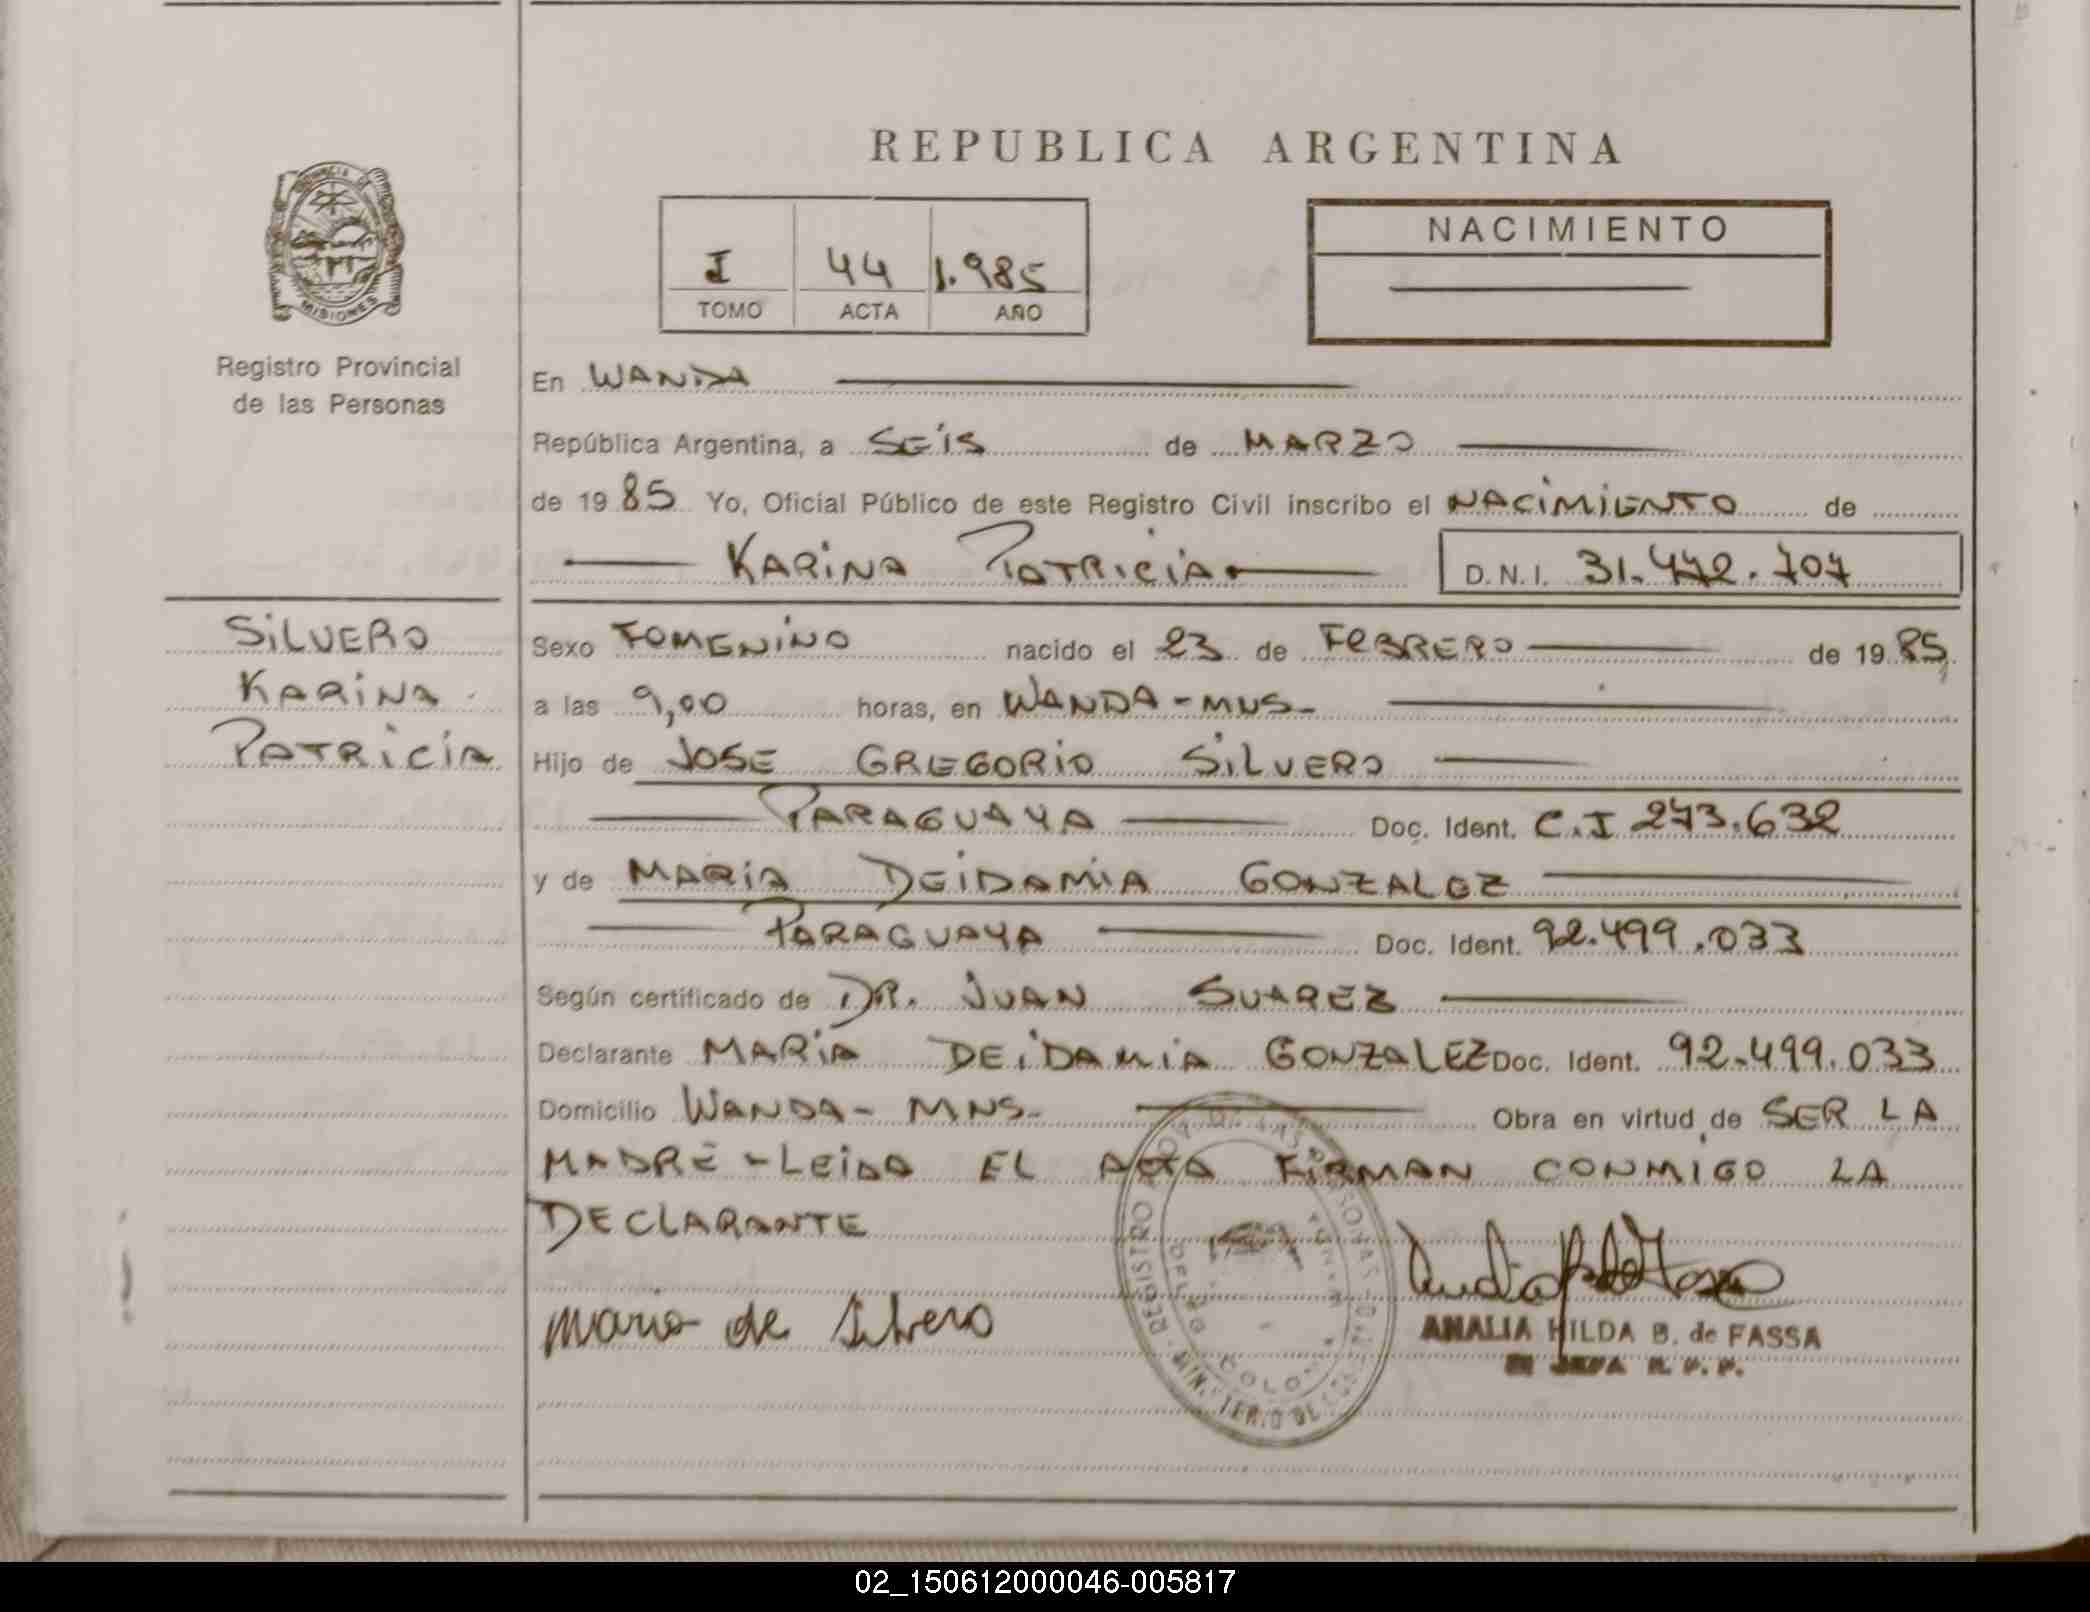 REPUBLICA ARGENTINA
MISIONES
Registro Provincial
de las Personas
I 44 1.985
TOMO ACTA AÑO
NACIMIENTO
En WANDA
República Argentina, a SEIS de MARZO
de 19 85 Yo, Oficial Público de este Registro Civil inscribo el NACIMIENTO de
KARINA PATRICIA D.N.I. 31.472.707
SILVERO
KARINA
PATRICIA
Sexo FEMENINO nacido el 23 de FEBRERO de 19 85,
a las 9,00 horas, en WANDA - MNS-
Hijo de JOSE GREGORIO SILVERO
PARAGUAYA Doc. Ident. C.I 273.632
y de MARIA DEIDAMIA GONZALEZ
PARAGUAYA Doc. Ident. 92.499.033
Según certificado de DR. JUAN SUAREZ
Declarante MARIA DEIDAMIA GONZALEZ Doc. Ident. 92.499.033
Domicilio WANDA - MNS- Obra en virtud de SER LA
MADRE - LEIDA EL ACTA FIRMAN CONMIGO LA
DECLARANTE
Maria de Silvero
ANALIA HILDA B. de FASSA
JEFA R. P. P.
02_150612000046-005817